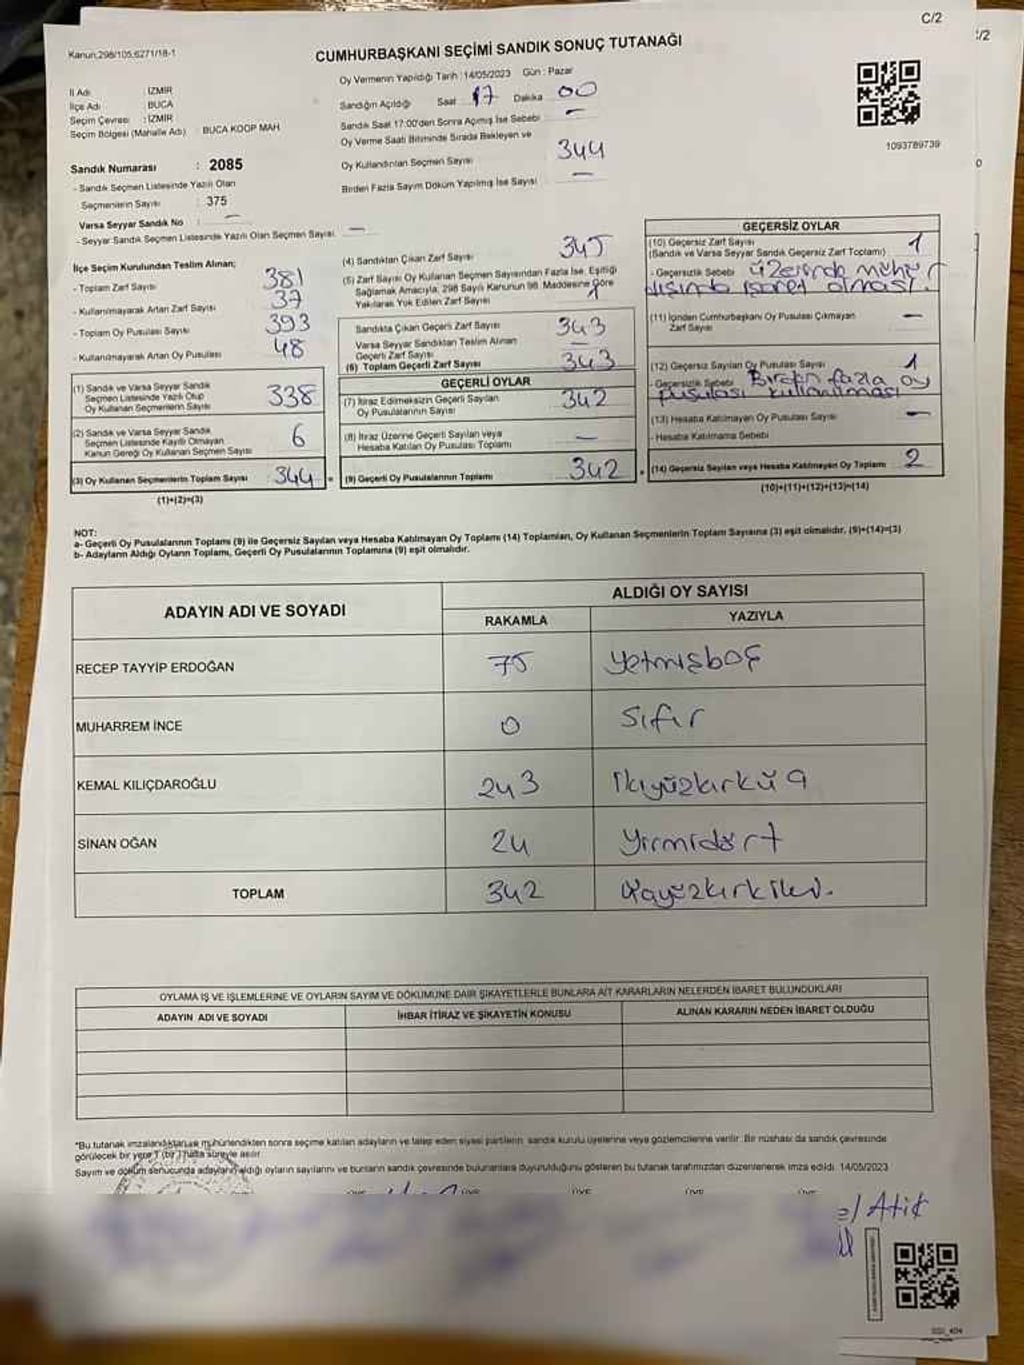 C/2
Kanun:298/105,6271/18-1
CUMHURBAŞKANI SEÇİMİ SANDIK SONUÇ TUTANAĞI
Oy Vermenin Yapıldığı Tarih :14/05/2023 Gün : Pazar
İl Adı : İZMİR
İlçe Adı : BUCA
Seçim Çevresi : İZMİR
Seçim Bölgesi (Mahalle Adı) : BUCA KOOP MAH
Sandığın Açıldığı Saat 17 Dakika 00
Sandık Saat 17:00'den Sonra Açılmış İse Sebebi : —
Oy Verme Saati Bitiminde Sırada Bekleyen ve
Oy Kullandırılan Seçmen Sayısı 344
Birden Fazla Sayım Döküm Yapılmış İse Sayısı —
1093789739
Sandık Numarası : 2085
- Sandık Seçmen Listesinde Yazılı Olan
Seçmenlerin Sayısı : 375
Varsa Seyyar Sandık No : —
- Seyyar Sandık Seçmen Listesinde Yazılı Olan Seçmen Sayısı: —
İlçe Seçim Kurulundan Teslim Alınan;
- Toplam Zarf Sayısı 381
- Kullanılmayarak Artan Zarf Sayısı 37
- Toplam Oy Pusulası Sayısı 393
- Kullanılmayarak Artan Oy Pusulası 48
(1) Sandık ve Varsa Seyyar Sandık
Seçmen Listesinde Yazılı Olup
Oy Kullanan Seçmenlerin Sayısı 338
(2) Sandık ve Varsa Seyyar Sandık
Seçmen Listesinde Kayıtlı Olmayan
Kanun Gereği Oy Kullanan Seçmen Sayısı 6
(3) Oy Kullanan Seçmenlerin Toplam Sayısı 344 =
(1)+(2)=(3)
(4) Sandıktan Çıkan Zarf Sayısı 345
(5) Zarf Sayısı Oy Kullanan Seçmen Sayısından Fazla İse, Eşitliği
Sağlamak Amacıyla, 298 Sayılı Kanunun 98. Maddesine Göre
Yakılarak Yok Edilen Zarf Sayısı 1
Sandıkta Çıkan Geçerli Zarf Sayısı 343
Varsa Seyyar Sandıktan Teslim Alınan
Geçerli Zarf Sayısı —
(6) Toplam Geçerli Zarf Sayısı 343
GEÇERLİ OYLAR
(7) İtiraz Edilmeksizin Geçerli Sayılan
Oy Pusulalarının Sayısı 342
(8) İtiraz Üzerine Geçerli Sayılan veya
Hesaba Katılan Oy Pusulası Toplamı —
(9) Geçerli Oy Pusulalarının Toplamı 342 +
GEÇERSİZ OYLAR
(10) Geçersiz Zarf Sayısı 1
(Sandık ve Varsa Seyyar Sandık Geçersiz Zarf Toplamı)
- Geçersizlik Sebebi Üzerinde mühür
dışında işaret olması.
(11) İçinden Cumhurbaşkanı Oy Pusulası Çıkmayan
Zarf Sayısı —
(12) Geçersiz Sayılan Oy Pusulası Sayısı 1
- Geçersizlik Sebebi Birden fazla oy
pusulası kullanılması
(13) Hesaba Katılmayan Oy Pusulası Sayısı —
- Hesaba Katılmama Sebebi
(14) Geçersiz Sayılan veya Hesaba Katılmayan Oy Toplamı 2
(10)+(11)+(12)+(13)=(14)
NOT:
a- Geçerli Oy Pusulalarının Toplamı (9) ile Geçersiz Sayılan veya Hesaba Katılmayan Oy Toplamı (14) Toplamları, Oy Kullanan Seçmenlerin Toplam Sayısına (3) eşit olmalıdır. (9)+(14)=(3)
b- Adayların Aldığı Oyların Toplamı, Geçerli Oy Pusulalarının Toplamına (9) eşit olmalıdır.
ADAYIN ADI VE SOYADI
ALDIĞI OY SAYISI
RAKAMLA YAZIYLA
RECEP TAYYİP ERDOĞAN 75 Yetmişbeş
MUHARREM İNCE 0 Sıfır
KEMAL KILIÇDAROĞLU 243
SİNAN OĞAN 24 Yirmidört
TOPLAM 342
OYLAMA İŞ VE İŞLEMLERİNE VE OYLARIN SAYIM VE DÖKÜMÜNE DAİR ŞİKAYETLERLE BUNLARA AİT KARARLARIN NELERDEN İBARET BULUNDUKLARI
ADAYIN ADI VE SOYADI İHBAR İTİRAZ VE ŞİKAYETİN KONUSU ALINAN KARARIN NEDEN İBARET OLDUĞU
*Bu tutanak imzalandıktan ve mühürlendikten sonra seçime katılan adayların ve talep eden siyasi partilerin sandık kurulu üyelerine veya gözlemcilerine verilir. Bir nüshası da sandık çevresinde
görülecek bir yere 1 (bir) hafta süreyle asılır.
Sayım ve döküm sonucunda adayların aldığı oyların sayılarını ve bunların sandık çevresinde bulunanlara duyurulduğunu gösteren bu tutanak tarafımızdan düzenlenerek imza edildi. 14/05/2023
ÜYE ÜYE ÜYE ÜYE
el Atik